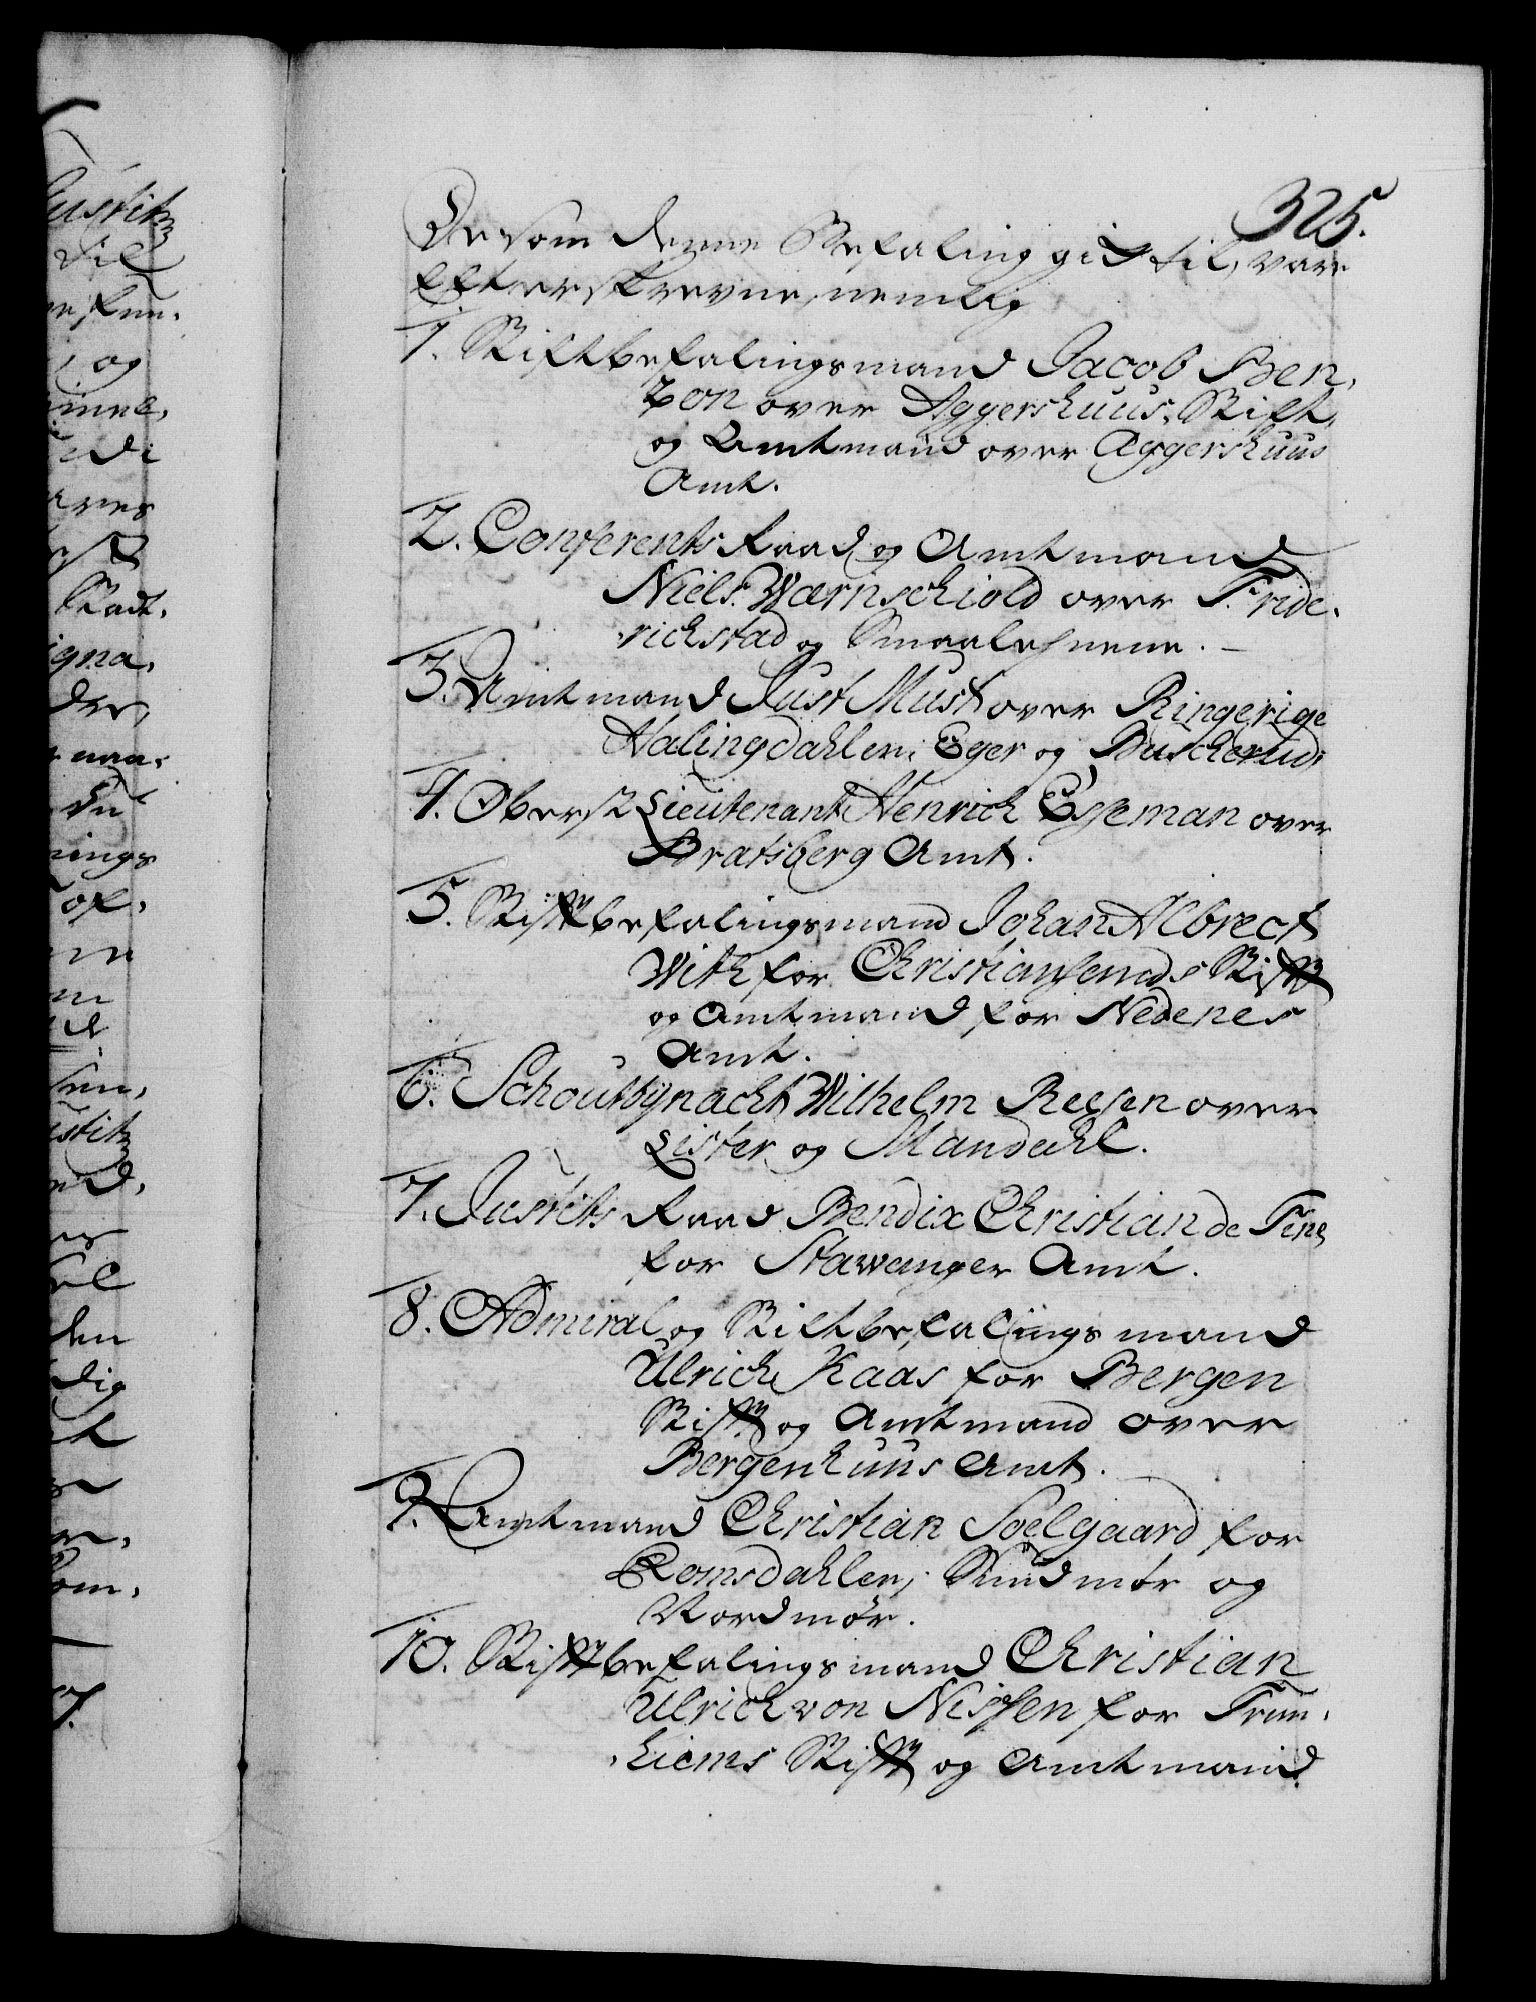 325.
De som denne Befaling gik til, vare
Efterskrevne, nemlig
1. Stiftbefalingsmand Jacob Ben,
tzon over Aggershuus, Stift,
og Amtmand over Aggershuus
Amt.
2. Conferents Raad og Amtmand
Niels Wærnschiold over Fride,
richstad og Smaalehnene.
3. Amtmand Just Must over Ringerige
Halingdahlen, Eger og Buscherud,
4. Oberst Lieutenant Henrich Egeman over
Bratsberg Amt.
5. Stiftbefalingsmand Johan Albrect
With for Christiansands Stift
og Amtmand for Nedenes
Amt.
6. Schoutbynacht Wilhelm Reesen over
Lister og Mandahl.
7. Justits Raad Bendix Christian de Fine
for Stavanger Amt.
8. Admiral og Stiftbefalings mand
Ulrich Kaas for Bergen
Stift og Amtmand over
Bergenhuus Amt.
9. Amtmand Christian Soelgaard for
Romsdahlen, Sundmør og
Nordmør.
10. Stiftbefalingsmand Christian
Ulrich von Nissen for Trun,
hiems Stift og Amtmand
Justitz
til
og
Stadt,
igna,
nings
of,
Justitz
den
dig
7.